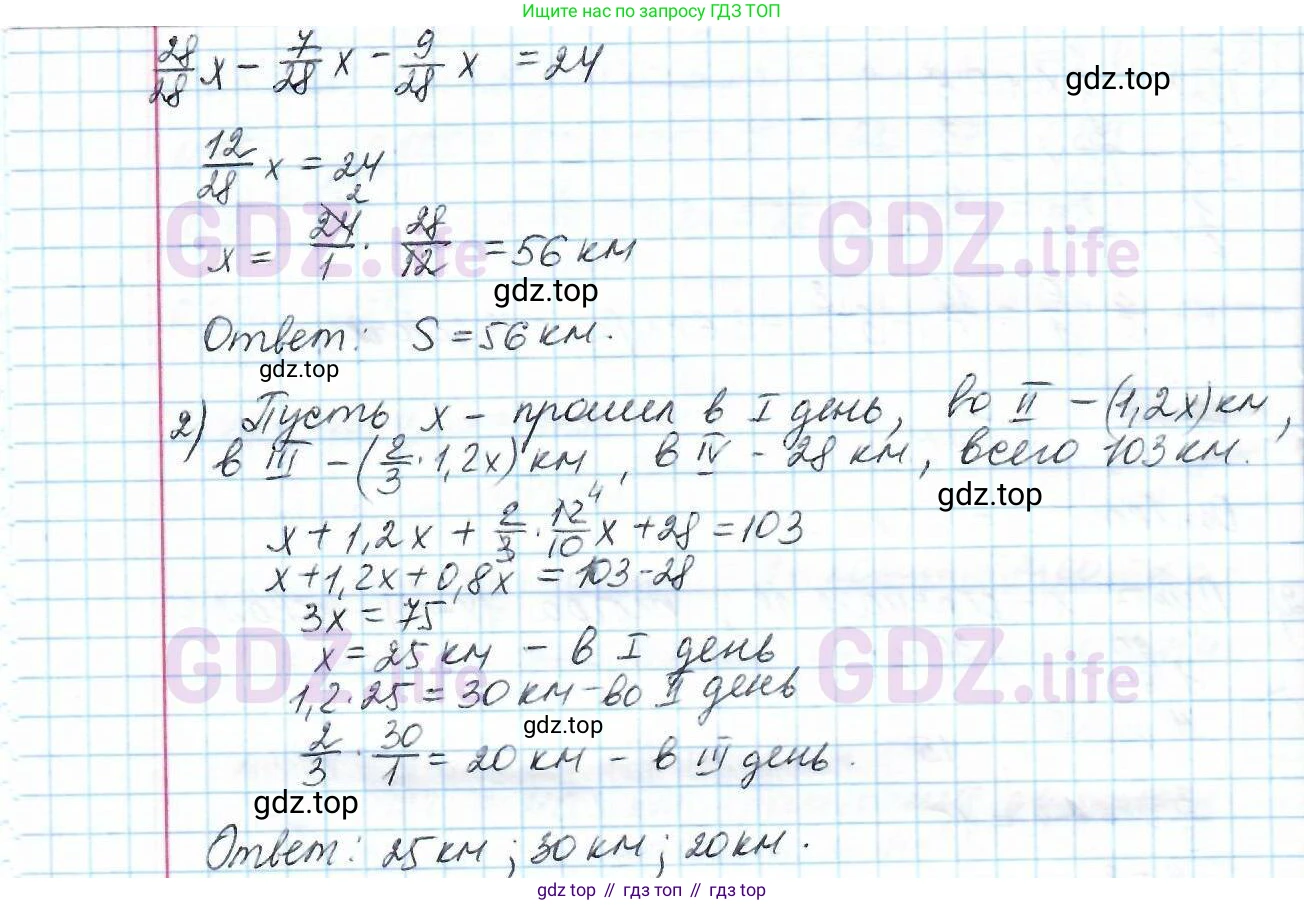 Ищите нас по запросу ГДЗ ТОП
28/28 x - 7/28 x - 9/28 x = 24
gdz.top
12/28 x = 24
2
x = 24/1 · 28/12 = 56 км
GDZ.life GDZ.life
gdz.top
Ответ: S = 56 км.
gdz.top
2) Пусть x - прошел в I день, во II - (1,2x) км,
в III - (2/3 · 1,2x) км, в IV - 28 км, всего 103 км.
gdz.top
x + 1,2x + 2/3 · 12/10 x + 28 = 103
4
x + 1,2x + 0,8x = 103 - 28
3x = 75
GDZ.life GDZ.life
x = 25 км - в I день
1,2 · 25 = 30 км - во II день
gdz.top
2/3 · 30/1 = 20 км - в III день.
gdz.top
Ответ: 25 км; 30 км; 20 км.
gdz top // гдз топ // гдз top